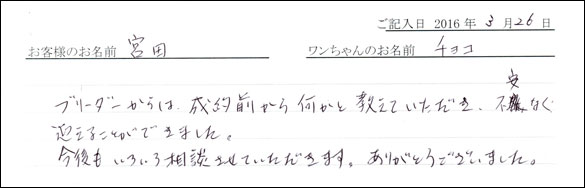 ご記入日 2016 年 3 月 26 日
お客様のお名前 宮田 ワンちゃんのお名前 チョコ
ブリーダーからは、成約前から何かと教えていただき、不安なく
迎えることができました。
今後もいろいろ相談させていただきます。ありがとうございました。